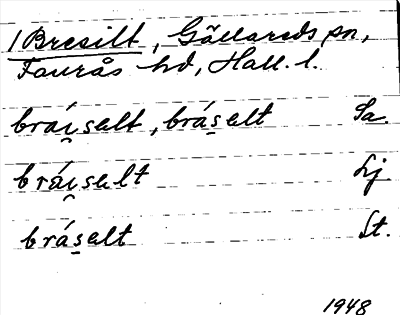 1 Bresilt, Gällareds sn,
Faurås hd, Hall. l.
brái̯s̱elt, brás̱elt Sa.
brái̯s̱elt Lj.
brás̱elt St.
1948